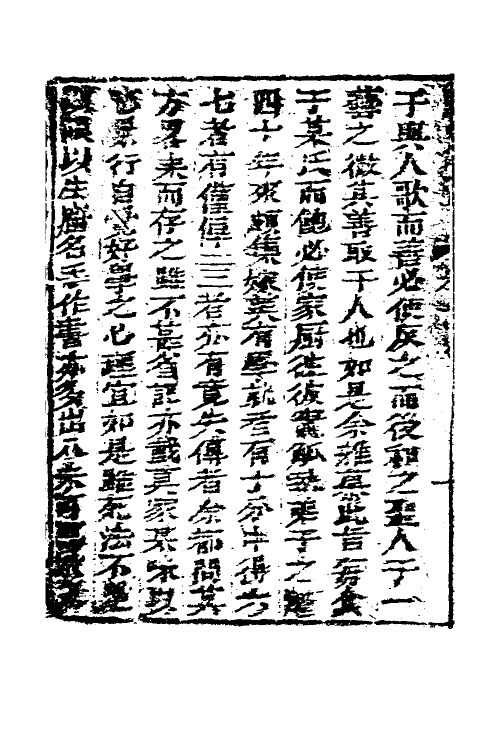 子與人歌而善必使反之而後和之聖人于一
藝之微其善取于人也如是余雅慕此旨每食
于某氏而飽必使家厨往彼竈觚執弟子之禮
四十年來頗集衆美有學就者有十分中得六
七者有僅得二三者亦有竟失傳者余都問其
方畧集而存之雖不甚省記亦載某家某味以
志景行自覺好學之心理宜如是雖死法不足
限生厨名手作書亦多出入未可專求